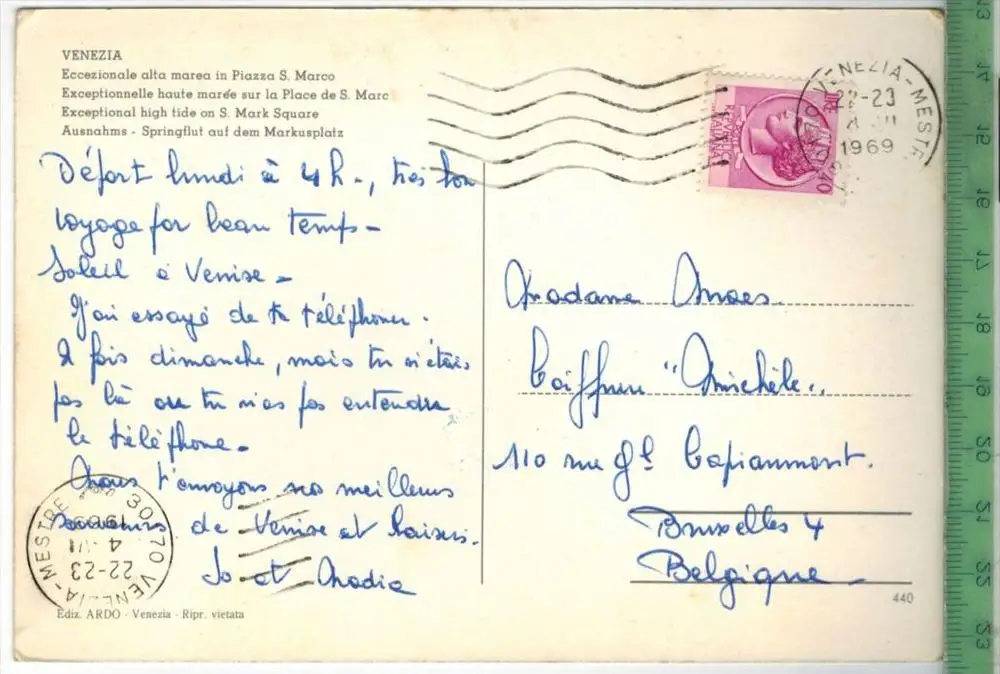 VENEZIA
Eccezionale alta marea in Piazza S. Marco
Exceptionnelle haute marée sur la Place de S. Marc
Exceptional high tide on S. Mark Square
Ausnahms - Springflut auf dem Markusplatz
Départ lundi à 4 h-, très bon
voyage par beau temps-
Soleil à Venise-
J'ai essayé de te téléphoner.
2 fois dimanche, mais tu n'étais
pas là ou tu n'as pas entendu
le téléphone-
Nous t'envoyons nos meilleurs
souvenirs de Venise et baisers.
Jo et Nadia
Ediz. ARDO - Venezia - Ripr. vietata
VENEZIA-MESTRE
22-23
1969
30170 VENEZIA-MESTRE
22-23
4 VI
1969
Madame Maes
Coiffure "Michèle".
110 rue Gl Capiaumont.
Bruxelles 4
Belgique-
440